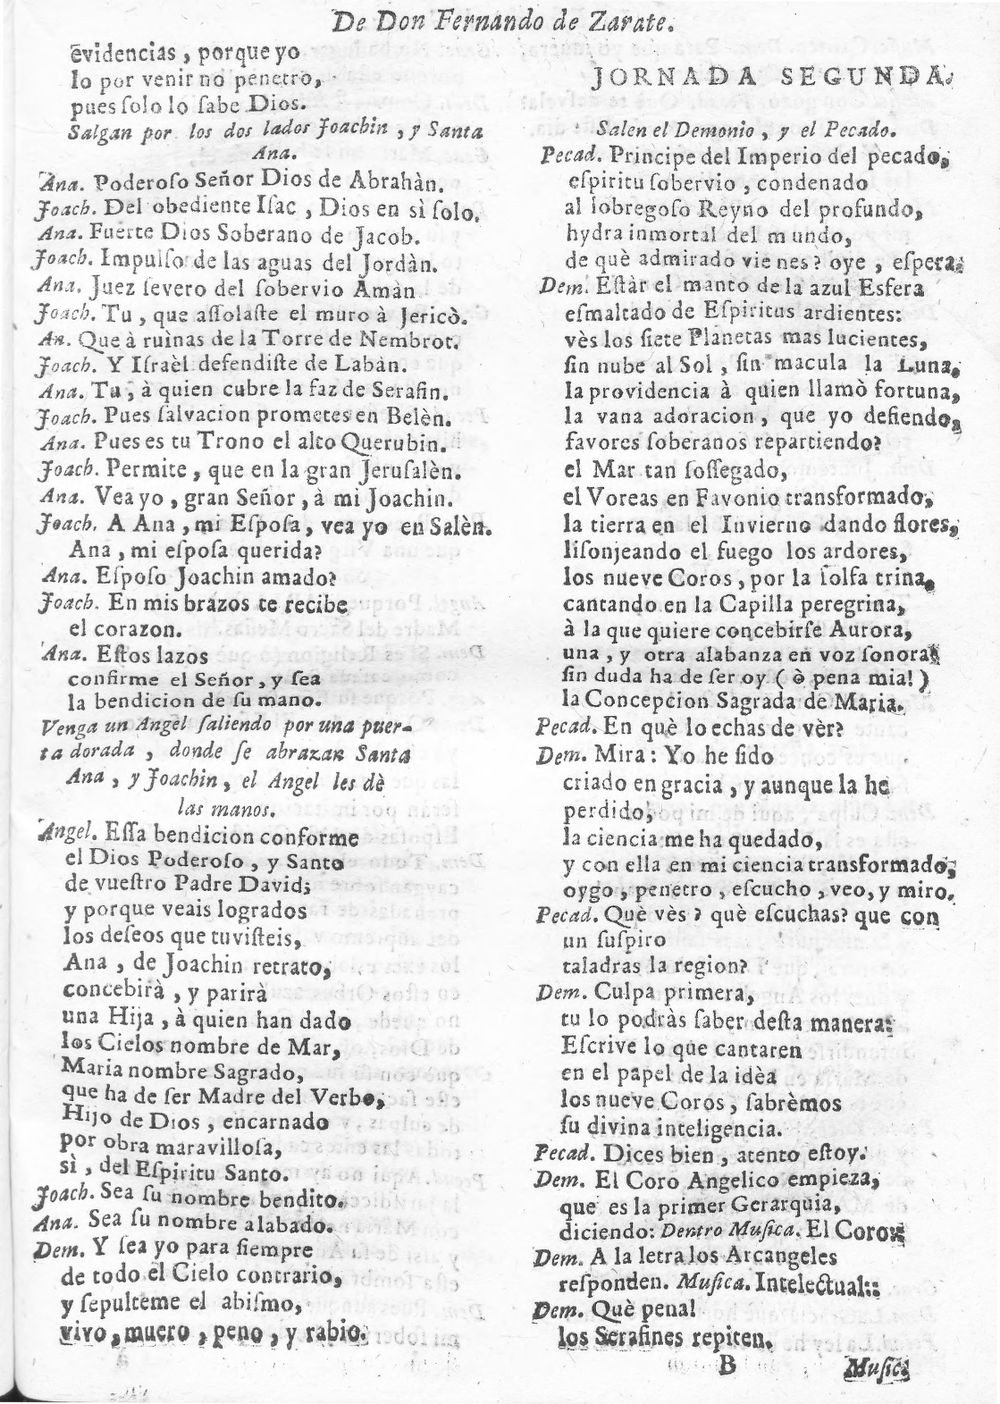 De Don Fernando de Zarate.
evidencias, porque yo
lo por venir no penetro,
pues ſolo lo ſabe Dios.
Salgan por los dos lados Joachin, y Santa
Ana.
Ana. Poderoſo Señor Dios de Abrahàn.
Joach. Del obediente Iſac, Dios en sì ſolo.
Ana. Fuerte Dios Soberano de Jacob.
Joach. Impulſo de las aguas del Jordàn.
Ana. Juez ſevero del ſobervio Amàn
Joach. Tu, que aſſolaſte el muro à Jericò.
An. Que à ruinas de la Torre de Nembrot.
Joach. Y Iſraèl defendiſte de Labàn.
Ana. Tu, à quien cubre la faz de Serafin.
Joach. Pues ſalvacion prometes en Belèn.
Ana. Pues es tu Trono el alto Querubin.
Joach. Permite, que en la gran Jeruſalèn.
Ana. Vea yo, gran Señor, à mi Joachin.
Joach. A Ana, mi Eſpoſa, vea yo en Salèn.
Ana, mi eſpoſa querida?
Ana. Eſpoſo Joachin amado?
Joach. En mis brazos te recibe
el corazon.
Ana. Eſtos lazos
confirme el Señor, y ſea
la bendicion de ſu mano.
Venga un Angel ſaliendo por una puer-
ta dorada, donde ſe abrazan Santa
Ana, y Joachin, el Angel les dè
las manos.
Angel. Eſſa bendicion conforme
el Dios Poderoſo, y Santo
de vueſtro Padre David;
y porque veais logrados
los deſeos que tuviſteis,
Ana, de Joachin retrato,
concebirà, y parirà
una Hija, à quien han dado
los Cielos nombre de Mar,
Maria nombre Sagrado,
que ha de ſer Madre del Verbo,
Hijo de Dios, encarnado
por obra maravilloſa,
sì, del Eſpiritu Santo.
Joach. Sea ſu nombre bendito.
Ana. Sea ſu nombre alabado.
Dem. Y ſea yo para ſiempre
de todo el Cielo contrario,
y ſepulteme el abiſmo,
vivo, muero, peno, y rabio.
JORNADA SEGUNDA.
Salen el Demonio, y el Pecado.
Pecad. Principe del Imperio del pecado,
eſpiritu ſobervio, condenado
al lobregoſo Reyno del profundo,
hydra inmortal del mundo,
de què admirado vienes? oye, eſpera.
Dem. Eſtàr el manto de la azul Esfera
eſmaltado de Eſpiritus ardientes:
vès los ſiete Planetas mas lucientes,
ſin nube al Sol, ſin macula la Luna,
la providencia à quien llamò fortuna,
la vana adoracion, que yo defiendo,
favores ſoberanos repartiendo?
el Mar tan ſoſſegado,
el Voreas en Favonio transformado,
la tierra en el Invierno dando flores,
liſonjeando el fuego los ardores,
los nueve Coros, por la ſolfa trina,
cantando en la Capilla peregrina,
à la que quiere concebirſe Aurora,
una, y otra alabanza en voz ſonora:
ſin duda ha de ſer oy (ò pena mia!)
la Concepcion Sagrada de Maria.
Pecad. En què lo echas de vèr?
Dem. Mira: Yo he ſido
criado en gracia, y aunque la he
perdido,
la ciencia me ha quedado,
y con ella en mi ciencia transformado,
oygo, penetro, eſcucho, veo, y miro.
Pecad. Què vès? què eſcuchas? que con
un ſuſpiro
taladras la region?
Dem. Culpa primera,
tu lo podràs ſaber deſta manera:
Eſcrive lo que cantaren
en el papel de la idèa
los nueve Coros, ſabrèmos
ſu divina inteligencia.
Pecad. Dices bien, atento eſtoy.
Dem. El Coro Angelico empieza,
que es la primer Gerarquia,
diciendo: Dentro Muſica. El Coro::
Dem. A la letra los Arcangeles
reſponden. Muſica. Intelectual::
Dem. Què pena!
los Serafines repiten.
B
Muſic.